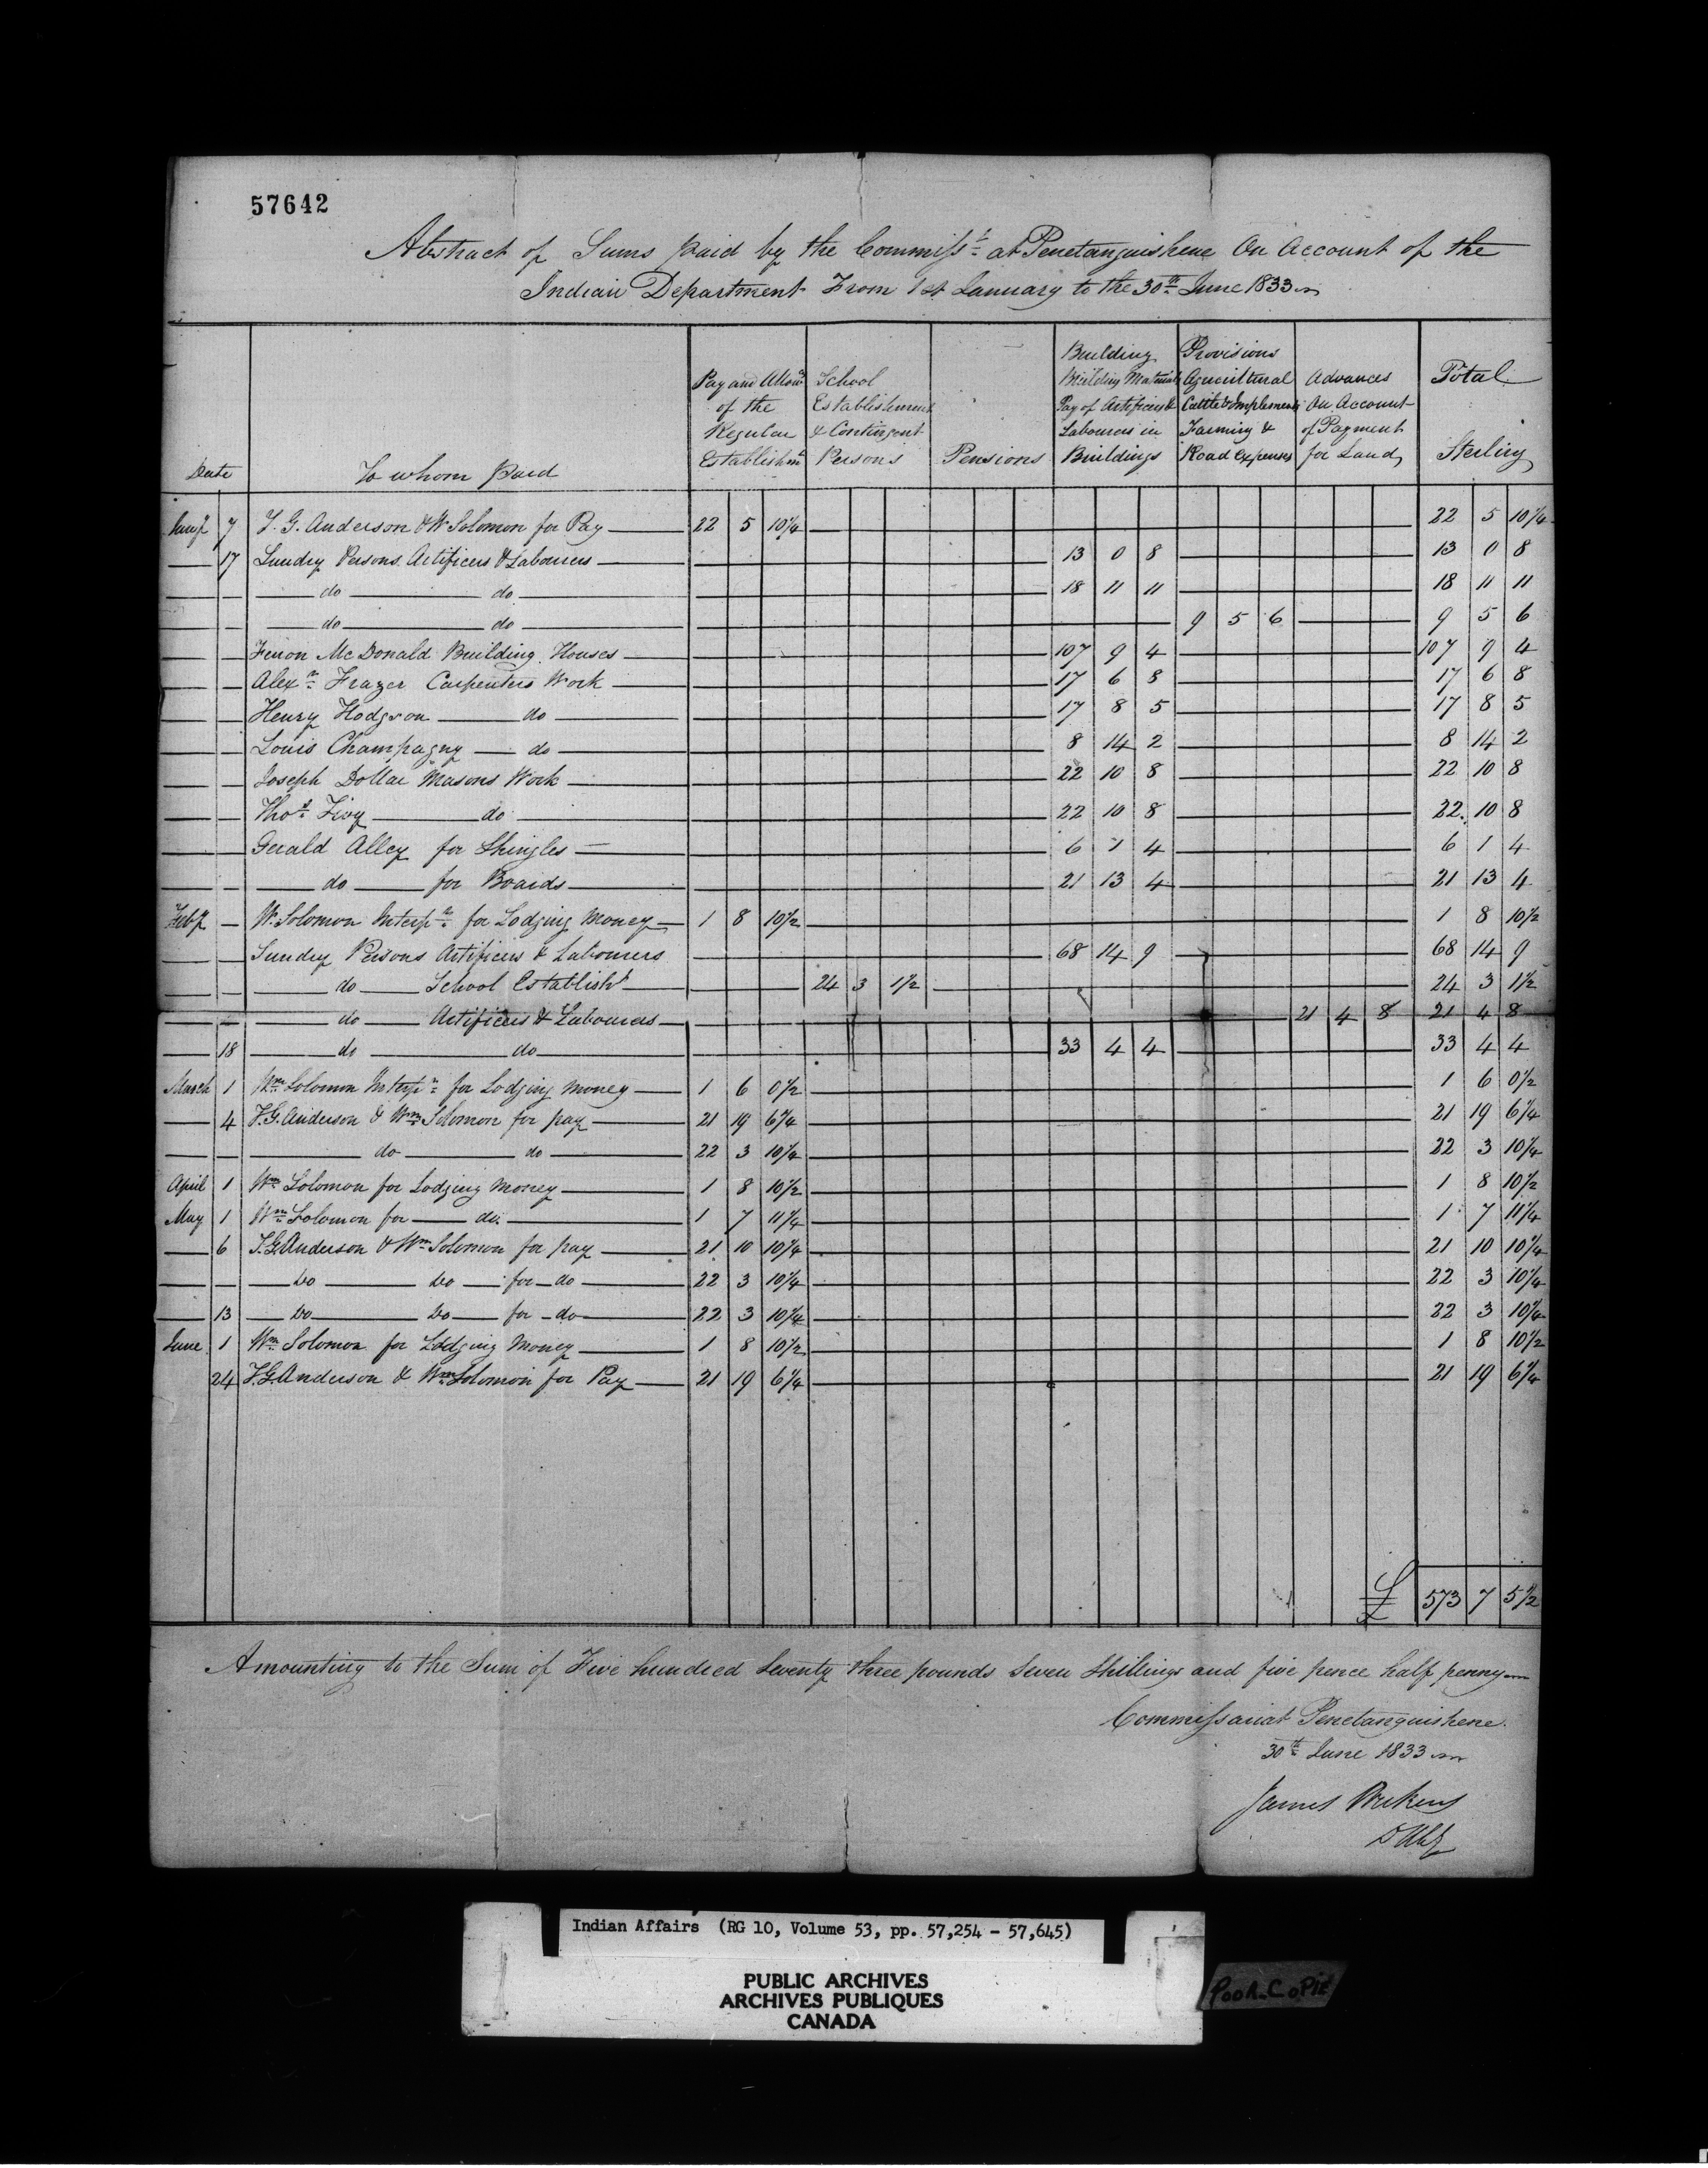 57642
Abstract of Sums paid by the Commisst at Penetanguishene On Account of the
Indian Department From 1st January to the 30th June 1833
Date | To whom Paid | Pay and Allowes of the Regular Establishmt | School Establishment & Contingent Persons | Pensions | Building Building Materials Pay of Artificers & Labourers in Buildings | Provisions Agricultural Cattle & Implements Farming & Road Expenses | Advances On Account of Payment for Land | Total Sterling
Jany 7 T. G. Anderson & W. Solomon for Pay 22 5 10¼ 22 5 10¼
17 Sundry Persons Artificers & Labourers 13 0 8 13 0 8
do do 18 11 11 18 11 11
do do 9 5 6 9 5 6
McDonald Building Houses 107 9 4 107 9 4
Alexr Frazer Carpenters Work 17 6 8 17 6 8
Henry Hodgson do 17 8 5 17 8 5
Louis Champagny do 8 14 2 8 14 2
Joseph Dollar Masons Work 22 10 8 22 10 8
Thos do 22 10 8 22 10 8
Gerald Alley for Shingles 6 1 4 6 1 4
do for Boards 21 13 4 21 13 4
Feby W. Solomon Interpr for Lodging Money 1 8 10½ 1 8 10½
Sundry Persons Artificers & Labourers 68 14 9 68 14 9
do School Establisht 24 3 1½ 24 3 1½
do Artificers & Labourers 21 4 8 21 4 8
18 do do 33 4 4 33 4 4
March 1 Wm Solomon Interpr for Lodging Money 1 6 0½ 1 6 0½
4 T. G. Anderson & Wm Solomon for pay 21 19 6¼ 21 19 6¼
do do 22 3 10¼ 22 3 10¼
April 1 Wm Solomon for Lodging Money 1 8 10½ 1 8 10½
May 1 Wm Solomon for do. 1 7 11¼ 1 7 11¼
6 T. G. Anderson & Wm Solomon for pay 21 10 10¼ 21 10 10¼
Do Do for do 22 3 10¼ 22 3 10¼
13 Do Do for do 22 3 10¼ 22 3 10¼
June 1 Wm Solomon for Lodging Money 1 8 10½ 1 8 10½
24 T. G. Anderson & Wm Solomon for Pay 21 19 6¼ 21 19 6¼
£ 573 7 5½
Amounting to the Sum of Five hundred Seventy three pounds Seven Shillings and five pence half penny
Commissariat Penetanguishene.
30th June 1833
James
Indian Affairs (RG 10, Volume 53, pp. 57,254 - 57,645)
PUBLIC ARCHIVES
ARCHIVES PUBLIQUES
CANADA
POOR COPIE